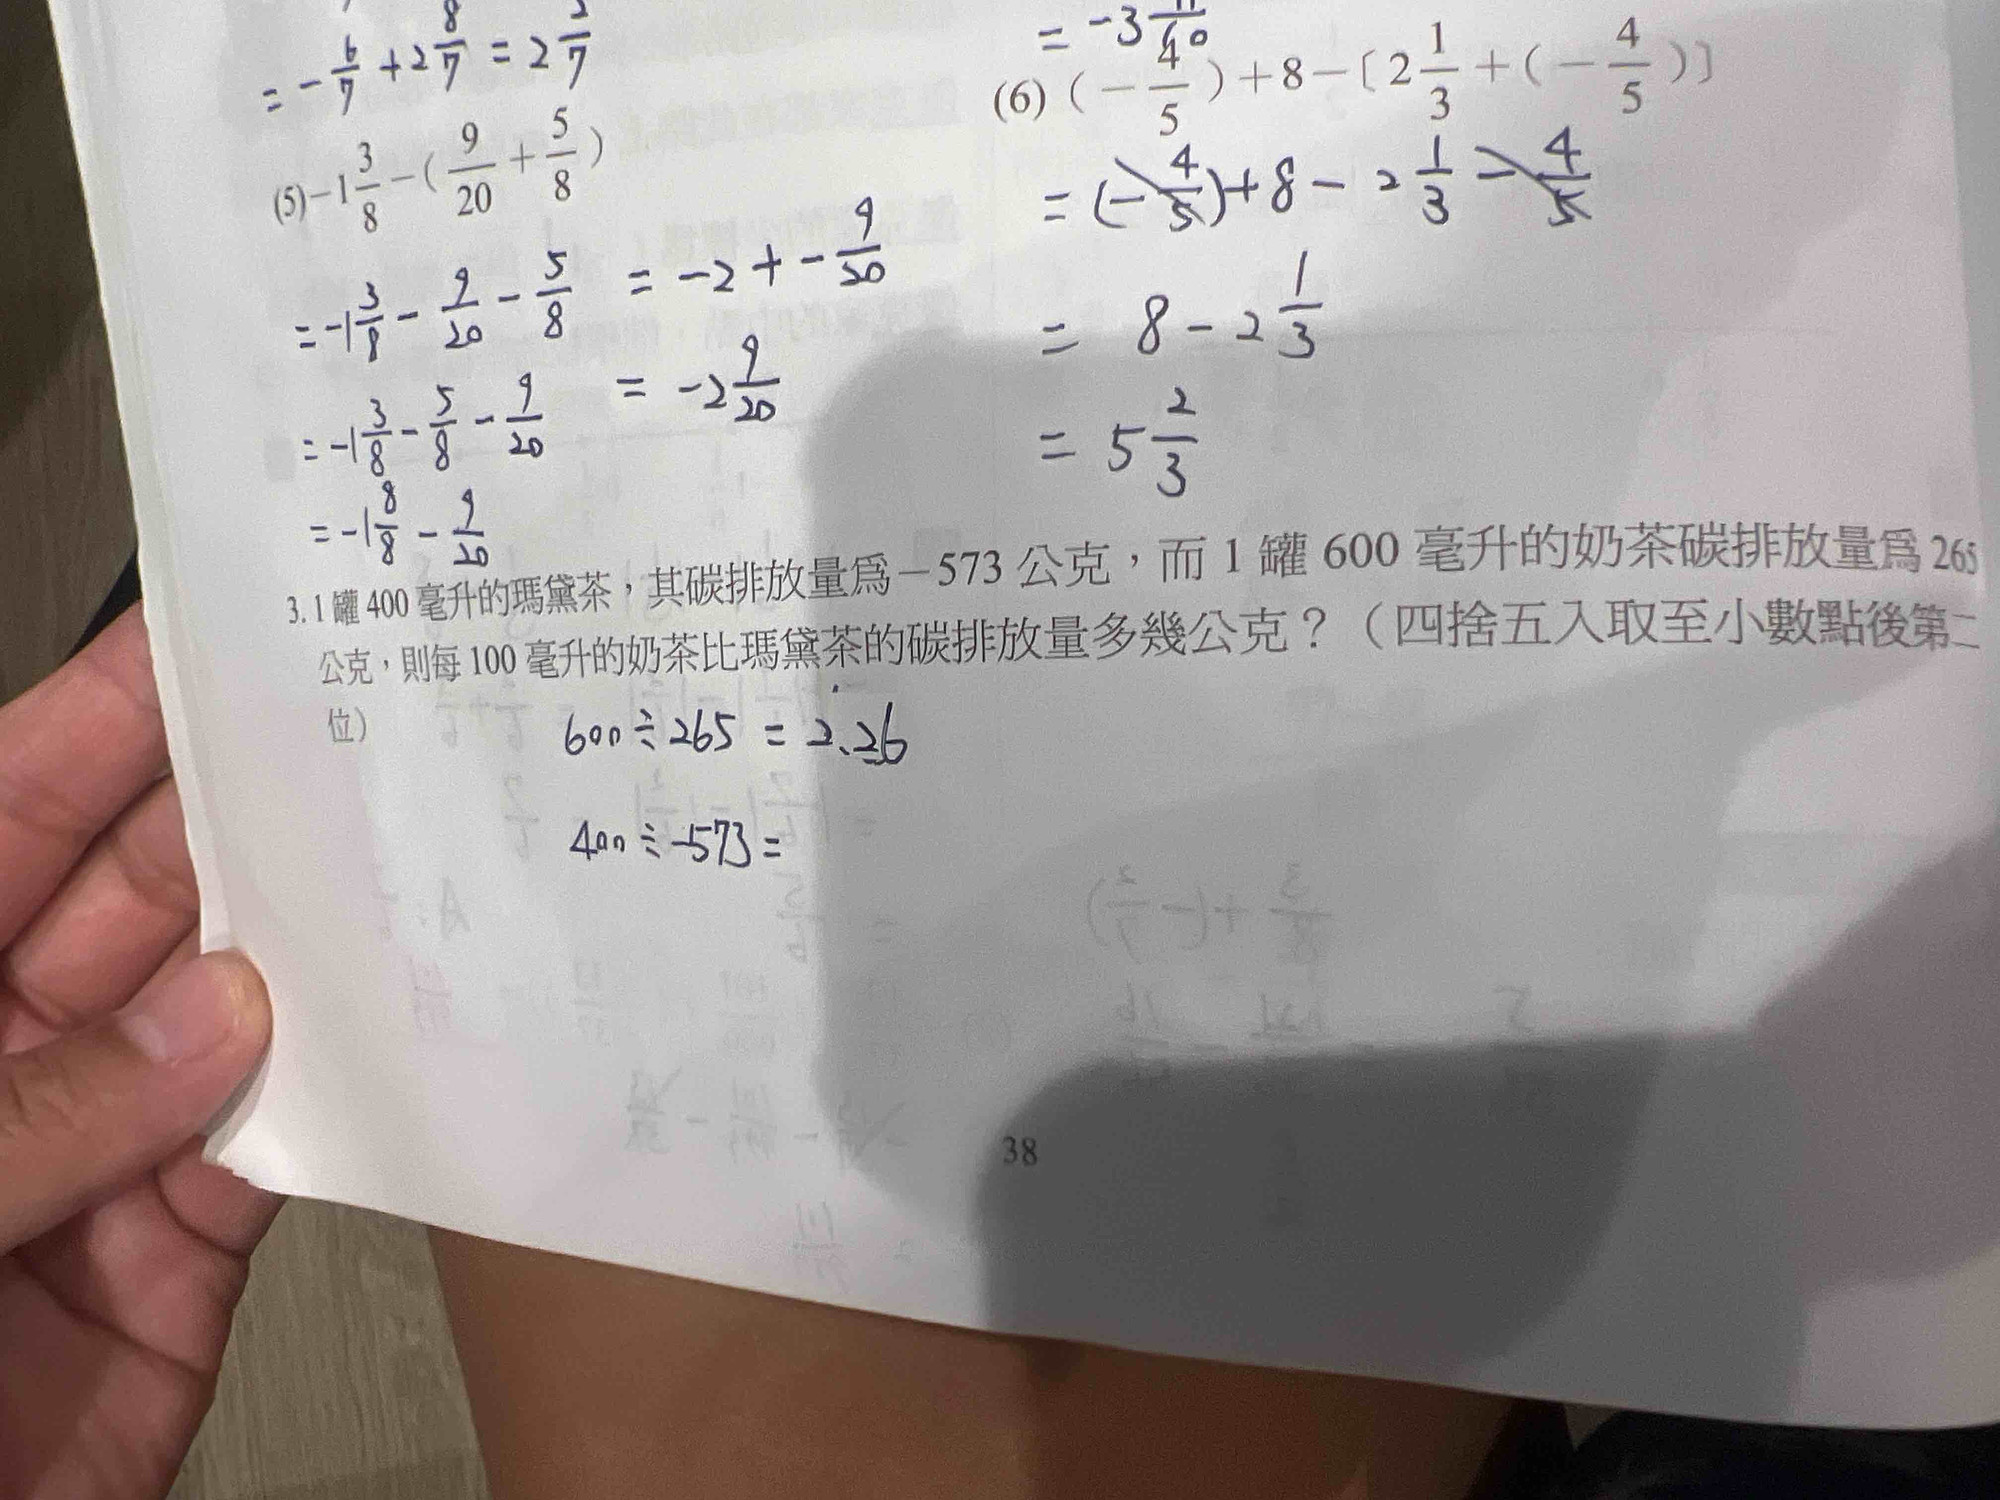 = -6/7 + 2 8/7 = 2 2/7
(5) -1 3/8 - ( 9/20 + 5/8 )
= -1 3/8 - 9/20 - 5/8
= -1 3/8 - 5/8 - 9/20
= -1 8/8 - 9/20
= -2 + - 9/20
= -2 9/20
= -3 11/60
(6) ( - 4/5 ) + 8 - 〔 2 1/3 + ( - 4/5 ) 〕
= (- 4/5) + 8 - 2 1/3 - 4/5
= 8 - 2 1/3
= 5 2/3
3. 1 罐 400 毫升的瑪黛茶，其碳排放量為－573 公克，而 1 罐 600 毫升的奶茶碳排放量為 265
公克，則每 100 毫升的奶茶比瑪黛茶的碳排放量多幾公克？（四捨五入取至小數點後第二
位）
600 ÷ 265 = 2.26
400 ÷ -573 =
38